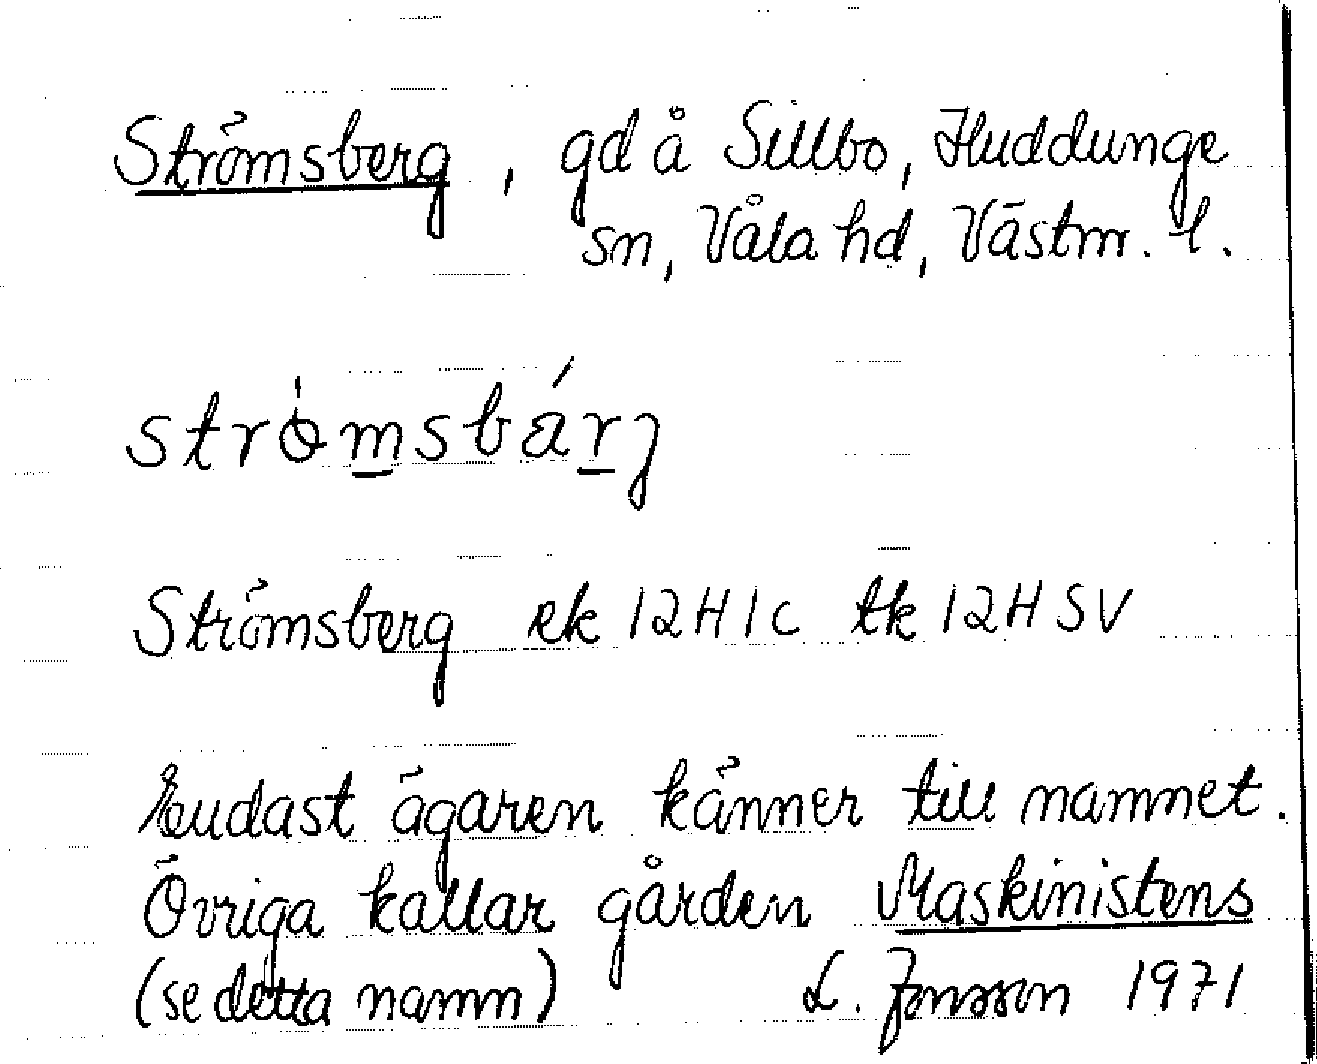 Strömsberg, gd å Sillbo, Huddunge
sn, Våla hd, Västm. l.
strò̀msbárʒ
Strömsberg ek 12H1c tk 12HSV
Endast ägaren känner till namnet.
Övriga kallar gården Maskinistens
(se detta namn) L. Jonsson 1971